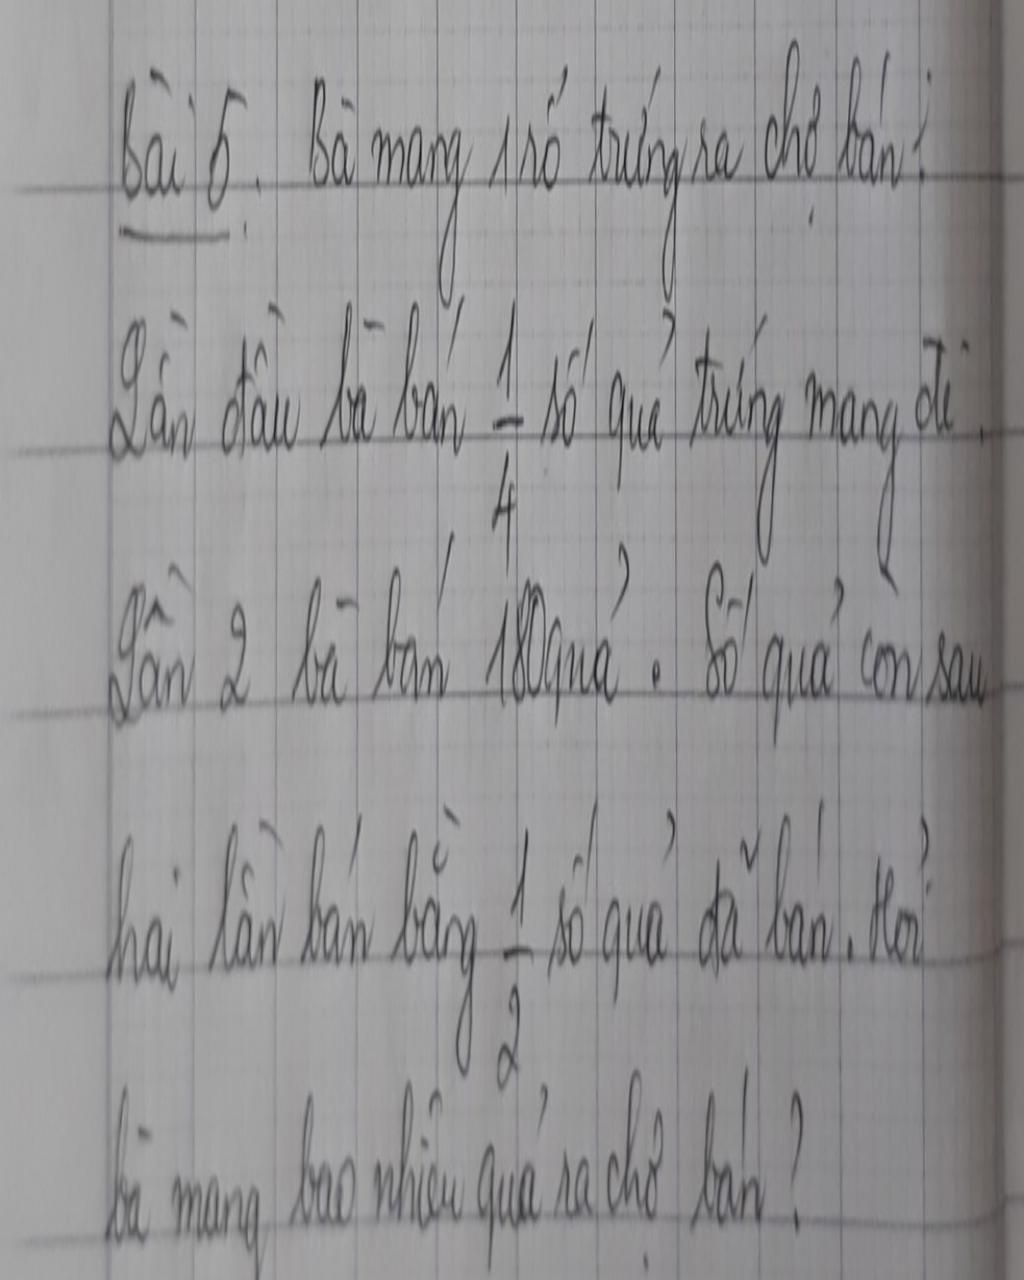 Bài 5. Bà mang 1 số trứng ra chợ bán.
Lần đầu bà bán 1/4 số quả trứng mang đi.
Lần 2 bà bán 180 quả. Số quả còn sau
hai lần bán bằng 1/2 số quả đã bán. Hỏi
bà mang bao nhiêu quả ra chợ bán?